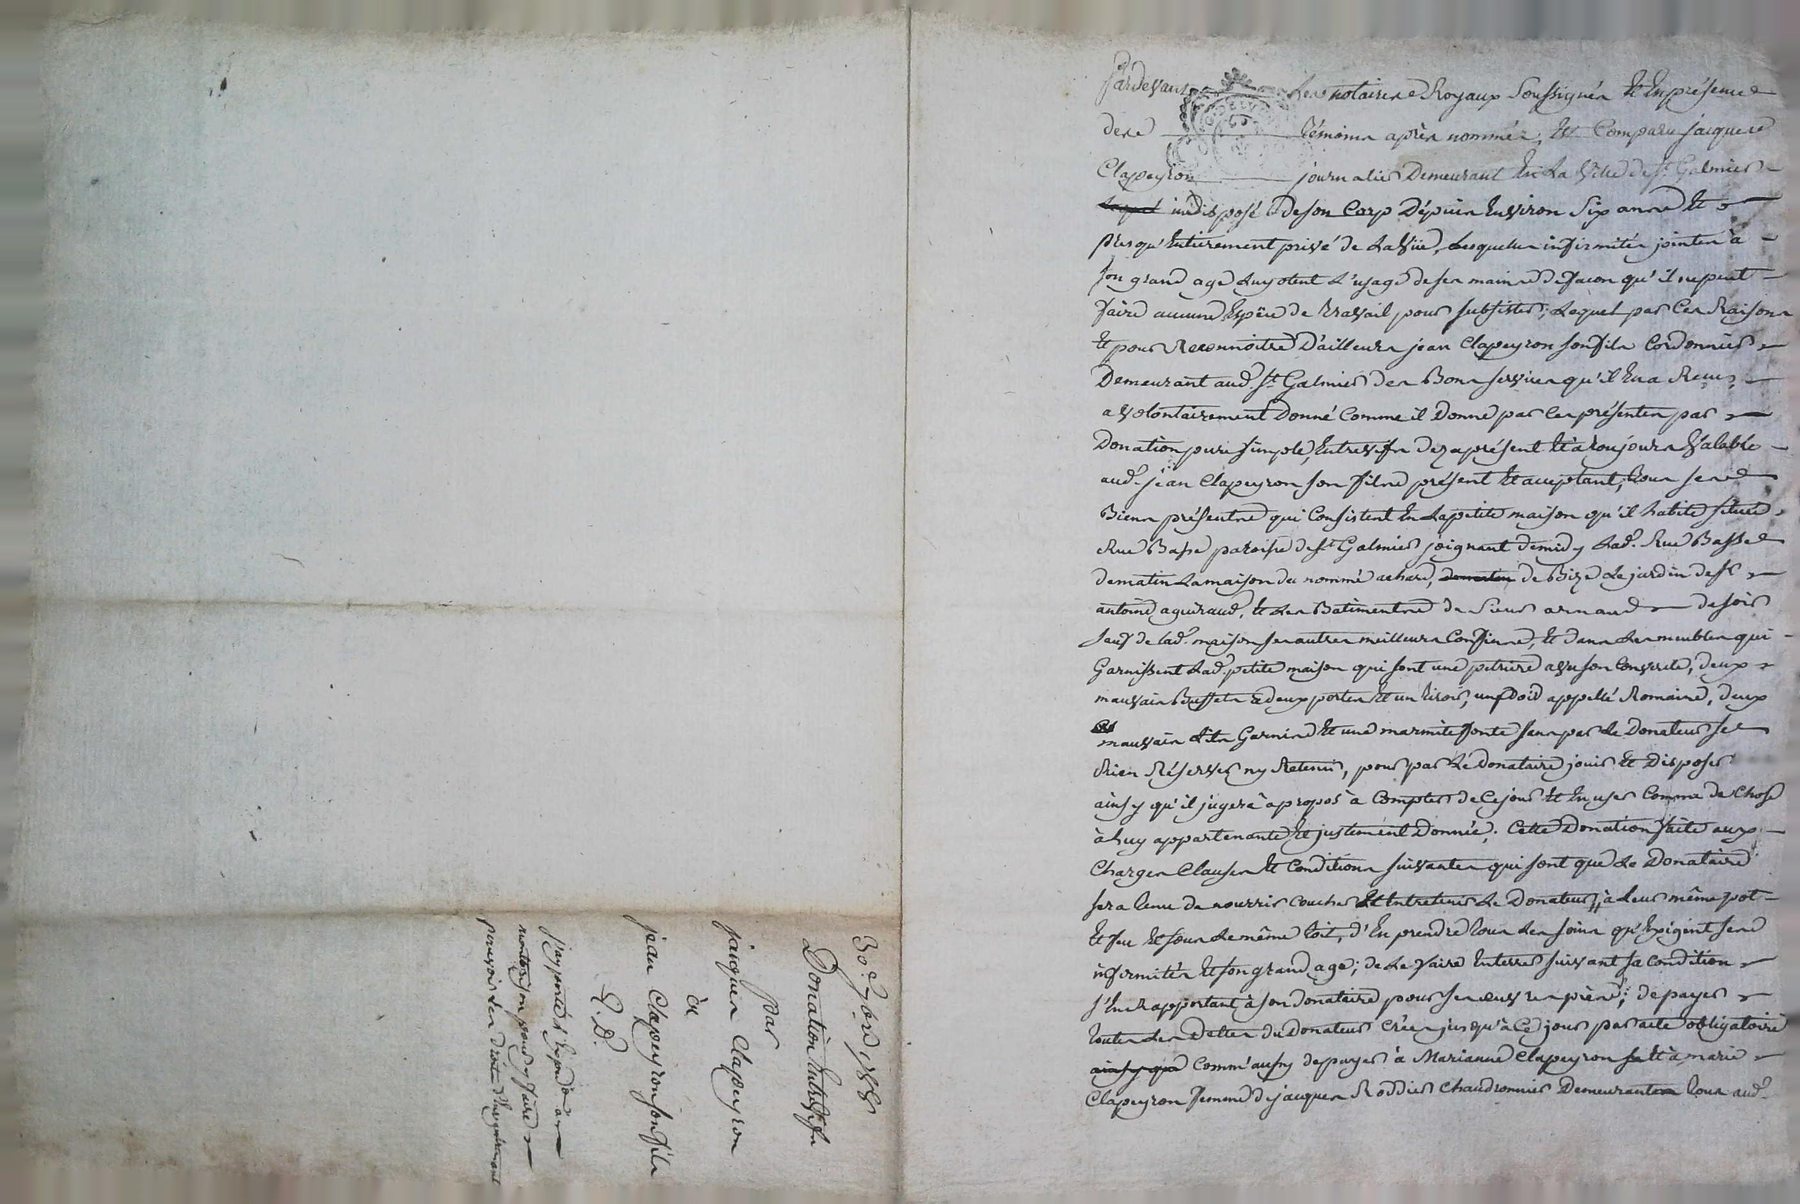 Pardevant Les notaires Royaux soussignés Et En présence
des témoins après nommés, Est Comparu jacques
Clapeyron journalier Demeurant En La Ville de St. Galmier
indisposé de son Corp Dépuis Environ Six anné Et
presqu'Entierement privé de La Vüe, Lesquelles infirmités jointes à
son grand age Luy otent L'usage de ses mains de facon qu'il ne peut
faire aucune Espéce de travail pour subsister; Lequel par Ces Raisons
Et pour Reconnoitre D'ailleurs jean Clapeyron son fils Cordonnier
Demeurant aud. St. Galmier des Bons services qu'il En a Reçus,
a volontairement Donné Comme il Donne par Ces présentes par
Donation pure simple, Entrevifs dez aprésent Et à toujours Valable
aud. jean Clapeyron son fils présent Et acceptant, tous ses
Biens présents qui Consistent En La petite maison qu'il habite située
Rue Basse paroisse de St. Galmier joignant de midy Lad. Rue Basse
de matin La maison du nommé achard, de Bize Le jardin de Sr
antoine aguiraud, Et Les Batiments de Sieur arnaud de soir
sauf de lad. maison ses autres meilleurs Confins, Et dans Les meubles qui
Garnissent Lad. petite maison qui sont une petriere avec son Couvercle, deux
mauvais Buffets à deux portes Et un tiroir, un poid appellé Romaine, deux
mauvais Lits Garnis Et une marmite fonte sans par Le Donateur se
Rien Réserver ny Retenir, pour par Le Donataire jouir Et Disposer
ainsy qu'il jugera à propos à Compter de Ce jour Et En user Comme de Chose
à Luy appartenante Et justement Donnée. Cette Donation faite aux
Charges Clauses Et Conditions suivantes qui sont que Le Donataire
sera tenu de nourrir coucher Et Entretenir Le Donateur, à Leur même pot
Et feu Et sous Le même toit, d'En prendre tous Les soins qu'Exigent ses
infirmités Et son grand age; de Le faire Enterrer suivant sa Condition
s'En Rapportant à son donataire pour ses œuvres pies; de payer
toutes Les Dettes du Donateur Crées jusqu'à Ce jour par acte obligatoire
Comm'aussy de payer à Marianne Clapeyron Et à marie
Clapeyron femme de jacques Roddier Chaudronnier Demeurant tous aud.
30e. 1788
Donation Entrevifs
par
jacques Clapeyron
à
jean Clapeyron son fils
E. D.
pour y faire
percevoir Les droits d'Enregistrement